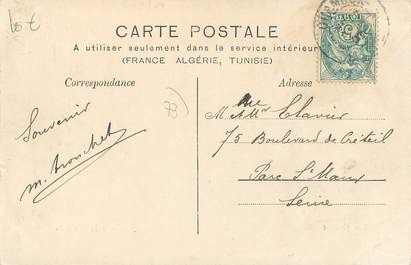 10 €
CARTE POSTALE
A utiliser seulement dans le service intérieur
(FRANCE ALGÉRIE, TUNISIE)
Correspondance
Adresse
73
Souvenir
M. Tronchet
M et Mme Clavier
75 Boulevard de Créteil
Parc St Maur
Seine